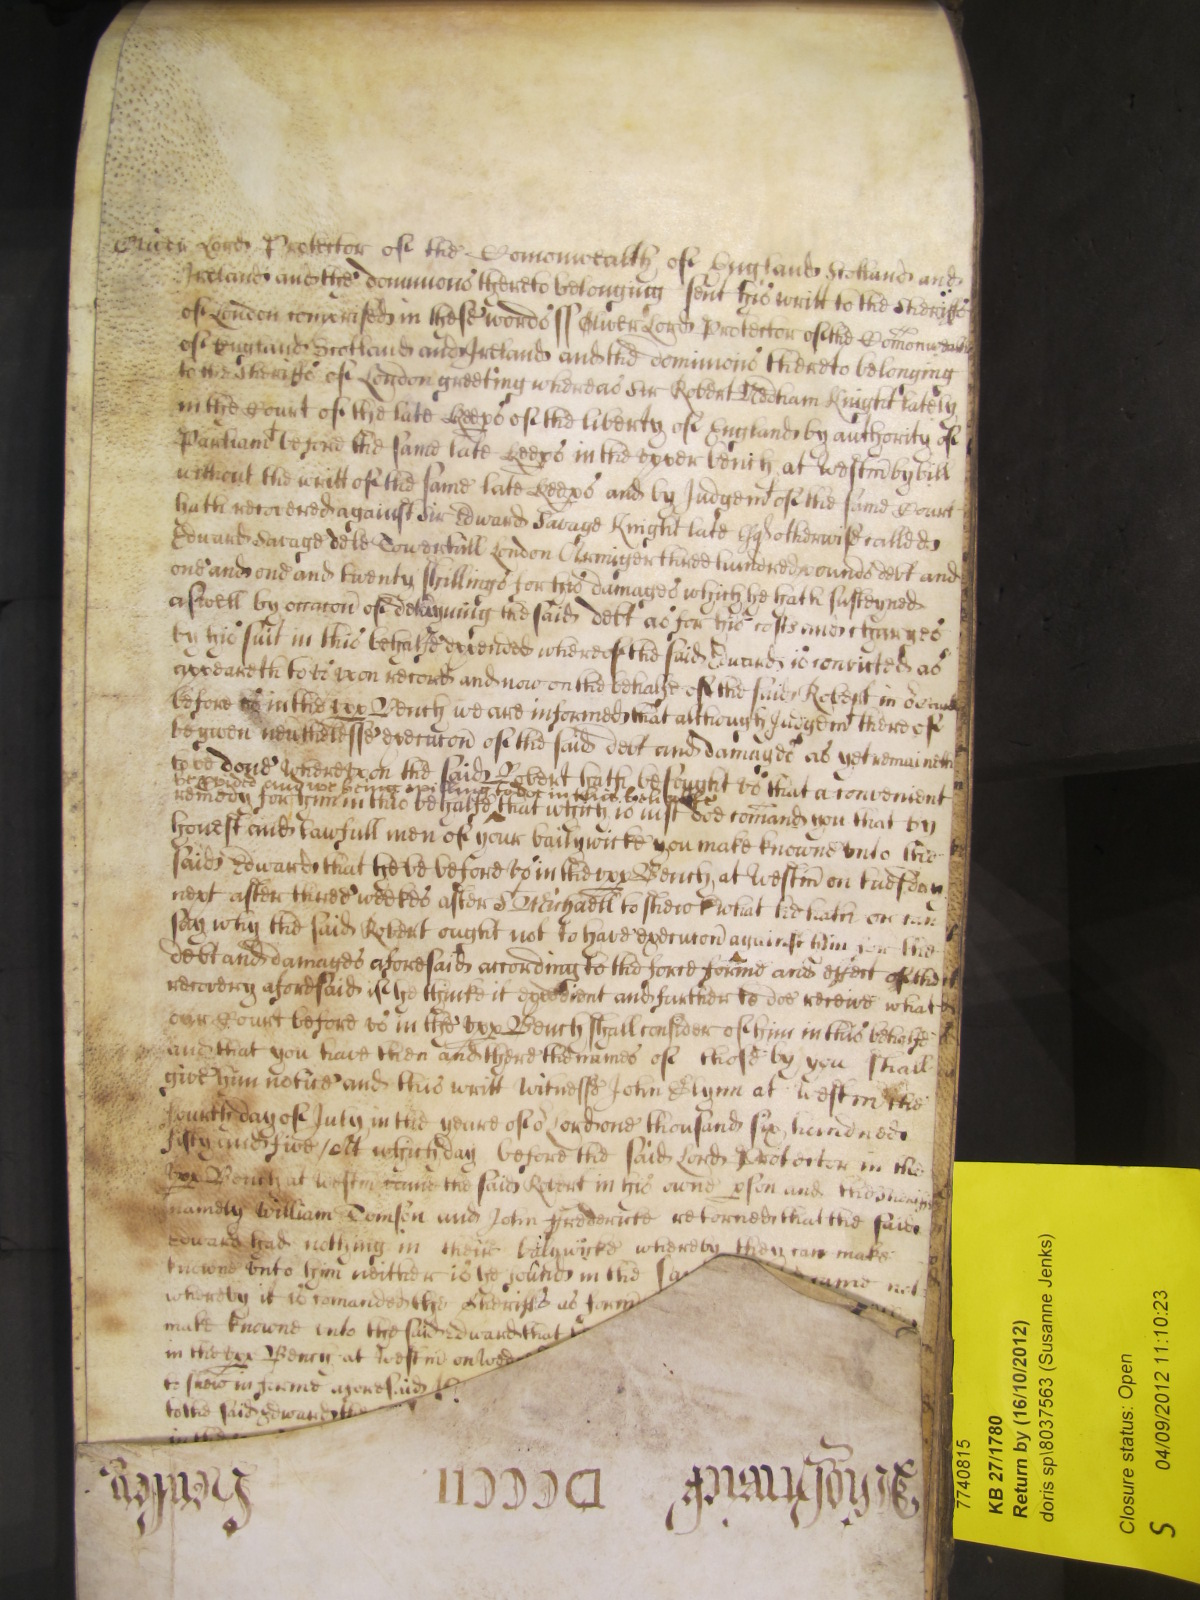 Oliver Lord Protector of the Comonwealth of England Scotland and
Ireland and the dominions thereto belonging sent his writt to the Sheriffs
of London comprised in these words ss Oliver Lord Protector of the Comonwealth
of England Scotland and Ireland and the dominions thereto belonging
to the Sheriffs of London greeting whereas Sir Robert Needham Knight lately
in the Court of the late Keeps of the liberty of England by authority of
Parliamt before the same late Keeps in the upper bench at Westm by bill
without the writt of the same late Keeps and by Judgemt of the same Court
hath recovered against Sir Edward Savage Knight late Esq otherwise called
Edward Savage de le Towerhill London Armiger three hundred pounds debt and
one and one and twenty shillings for his damages which he hath susteyned
aswell by occacon of deteyning the said debt as for his costs and charges
by his suit in this behalfe expended whereof the said Edward is convicted as
appeareth to us upon record and now on the behalfe of the said Robert in
before us in the upp Bench we are informed that although Judgemt thereof
be given neverthelesse execucon of the said debt and damages as yet remaineth
to be done whereupon the said Robert hath besought us that a convenient
be provided and we being willing to doe in this behalfe
remedy for him in this behalfe that which is just doe comand you that by
honest and lawfull men of your bailywicke you make knowne unto the
said Edward that he be before us in the upp Bench at Westm on tuesday
next after three weekes after St Michaell to shew what he hath or can
say why the said Robert ought not to have execucon against him for the
debt and damages aforesaid according to the force forme and effect of the
recovery aforesaid if he thinke it expedient and further to doe receive what
our Court before us in the upp Bench shall consider of him in this behalfe
and that you have then and there the names of those by you shall
give him notice and this writt Witnesse John Glynn at Westm the
fourth day of July in the yeare of o Lord one thousand six hundred
fifty and five / Att which day before the said Lord Protector in the
upp Bench at Westm came the said Robert in his owne pson and the Sheriffs
namely William Tomson and John Frederick retorned that the said
Edward had nothing in their balywicke whereby they can make
knowne unto him neither is he found in the same came not
whereby it is comanded the Sheriffs as form
make knowne unto the said Edward that
in the upp Bench at Westm on Wed
to shew in forme aforesaid
to the said Edward the
in the
DCCCII
7740815
KB 27/1780
Return by (16/10/2012)
doris sp\8037563 (Susanne Jenks)
Closure status: Open
04/09/2012 11:10:23
S